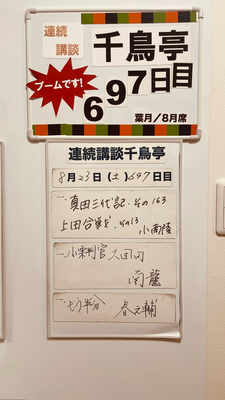 連続
講談
千鳥亭
ブームです!
697日目
葉月/8月席
連続講談千鳥亭
8月23日(土)697日目
一、真田三代記・その163
上田合戦・その13
小南陵
一、小栗判官
南龍
一、七分半分
春之輔